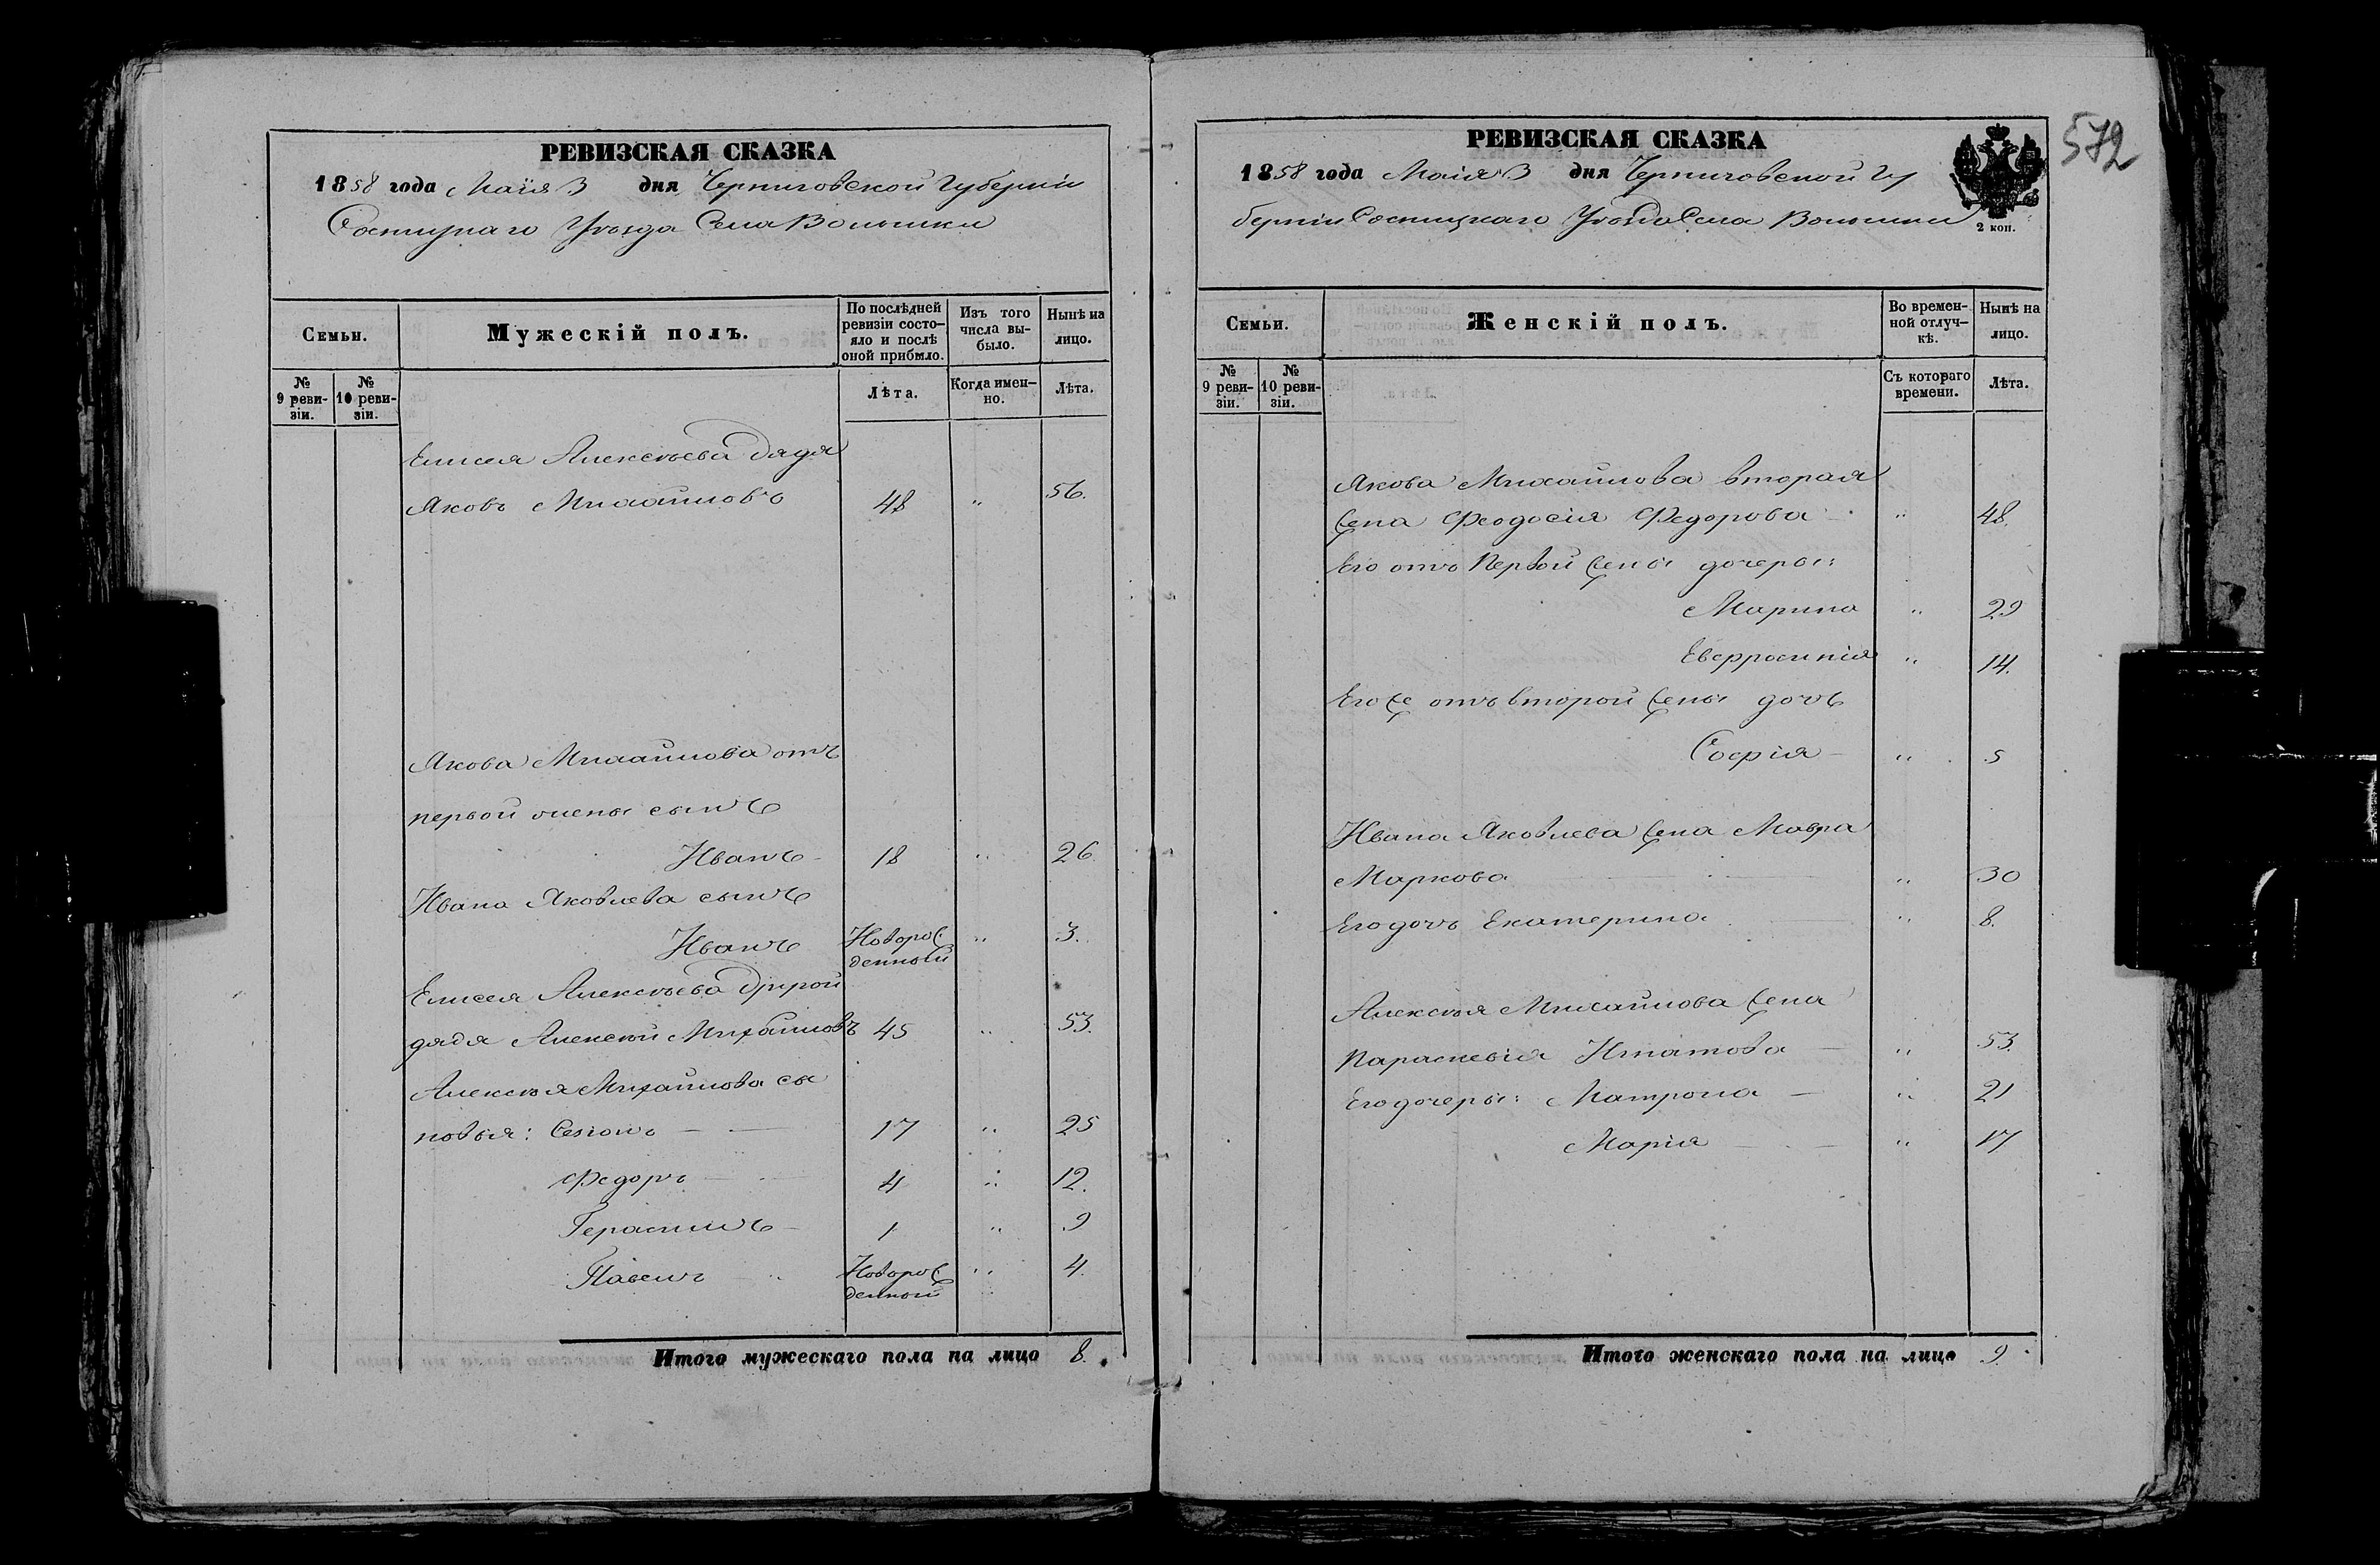 РЕВИЗСКАЯ СКАЗКА
1858 года Маія 3 дня Черниговской Губерніи
Сосницкаго Уѣзда Села Волынки
Семьи.
Мужескій полъ.
По послѣдней ревизіи состояло и послѣ оной прибыло.
Изъ того числа выбыло.
Нынѣ на лицо.
№ 9 ревизіи.
№ 10 ревизіи.
Лѣта.
Когда именно.
Лѣта.
Елисея Алексѣева дядя
Яковъ Михайловъ 48 " 56.
Якова Михайлова отъ
первой жены сынъ
Иванъ 18 " 26.
Ивана Яковлева сынъ
Иванъ Новорожденный " 3.
Елисея Алексѣева другой
дядя Алексѣй Михайловъ 45 " 53.
Алексѣя Михайлова сы
новья: Семонъ 17 " 25
Федоръ 4 " 12.
Герасимъ 1 " 9
Павелъ Новорожденный " 4.
Итого мужескаго пола на лицо 8.
572
РЕВИЗСКАЯ СКАЗКА
1858 года Маія 3 дня Черниговской Гу
берніи Сосницкаго Уѣзда Села Волынки
2 коп.
Семьи.
Женскій полъ.
Во временной отлучкѣ.
Нынѣ на лицо.
№ 9 ревизіи.
№ 10 ревизіи.
Съ котораго времени.
Лѣта.
Якова Михайлова вторая
жена Феодосія Федорова " 48.
Его отъ первой жены дочеры:
Марина " 29
Евфросинія " 14.
Его же отъ второй жены дочь
Софія " 5
Ивана Яковлева жена Мавра
Маркова " 30
Его дочь Екатерина " 8.
Алексѣя Михайлова жена
Параскевія Игнатова " 53.
Его дочеры: Матрона " 21
Марія " 17
Итого женскаго пола на лицо 9.